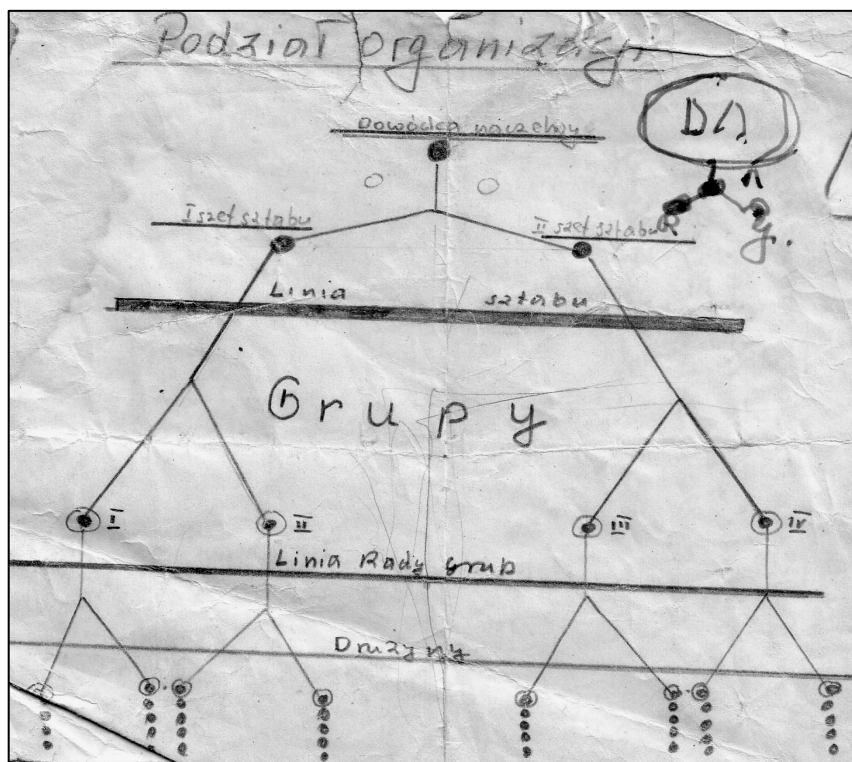 Podział organizacji
Dowódca naczelny
I szef sztabu
II szef sztabu
Linia sztabu
Grupy
I II III IV
Linia Rady grub
Drużyny